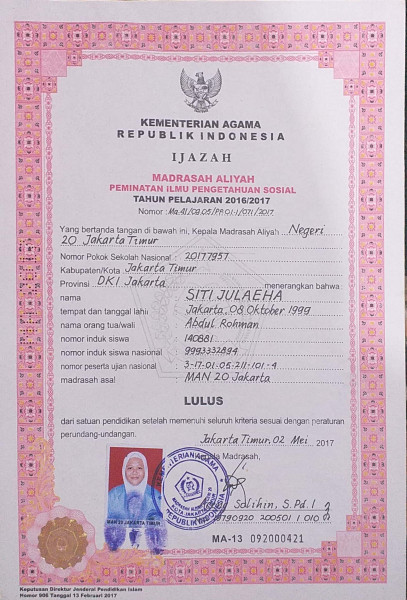 KEMENTERIAN AGAMA
REPUBLIK INDONESIA
IJAZAH
MADRASAH ALIYAH
PEMINATAN ILMU PENGETAHUAN SOSIAL
TAHUN PELAJARAN 2016/2017
Nomor : Ma.41/09.05/PP.01.1/071/2017
Yang bertanda tangan di bawah ini, Kepala Madrasah Aliyah Negeri
20 Jakarta Timur
Nomor Pokok Sekolah Nasional : 20177957
Kabupaten/Kota Jakarta Timur
Provinsi DKI Jakarta menerangkan bahwa:
nama SITI JULAEHA
tempat dan tanggal lahir Jakarta, 08 Oktober 1999
nama orang tua/wali Abdul Rohman
nomor induk siswa 140881
nomor induk siswa nasional 9993332894
nomor peserta ujian nasional 3-17-01-05-211-101-4
madrasah asal MAN 20 Jakarta
LULUS
dari satuan pendidikan setelah memenuhi seluruh kriteria sesuai dengan peraturan
perundang-undangan.
Jakarta Timur, 02 Mei 2017
Kepala Madrasah,
Solihin, S.Pd.I
MAN 20 JAKARTA TIMUR
MA-13 092000421
Keputusan Direktur Jenderal Pendidikan Islam
Nomor 906 Tanggal 13 Februari 2017